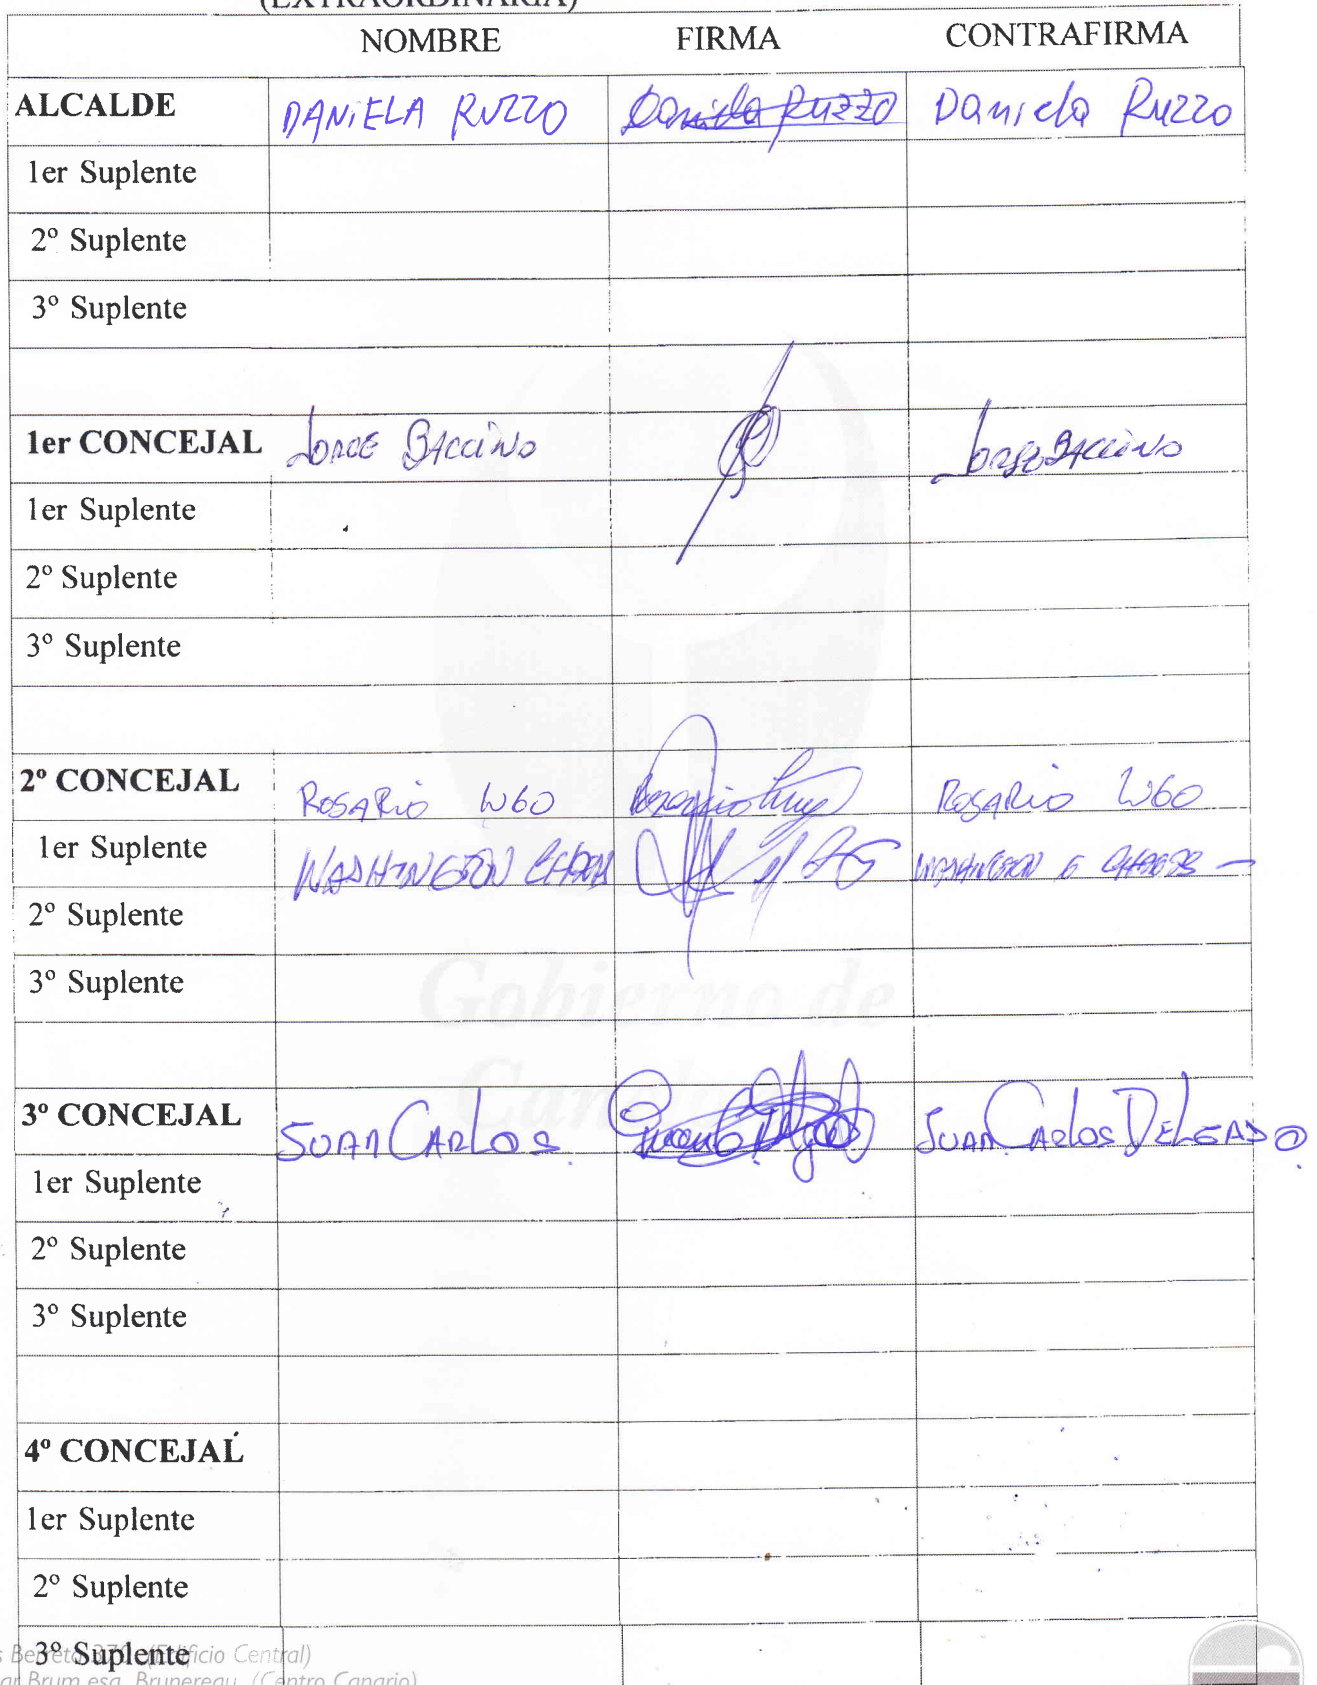 (EXTRAORDINARIA)
NOMBRE FIRMA CONTRAFIRMA
ALCALDE DANIELA RUZZO Daniela Ruzzo Daniela Ruzzo
1er Suplente
2º Suplente
3º Suplente
1er CONCEJAL JORGE BACCINO Jorge BACCINO
1er Suplente
2º Suplente
3º Suplente
2º CONCEJAL ROSARIO LUGO Rosario Lugo ROSARIO LUGO
1er Suplente WASHINGTON WASHINGTON
2º Suplente
3º Suplente
Gobierno de
3º CONCEJAL JUAN CARLOS JUAN CARLOS DELGADO
1er Suplente
2º Suplente
3º Suplente
4º CONCEJAL
1er Suplente
2º Suplente
3º Suplente
370 (Edificio Central)
Brum esq. Brunereau (Centro Canario)